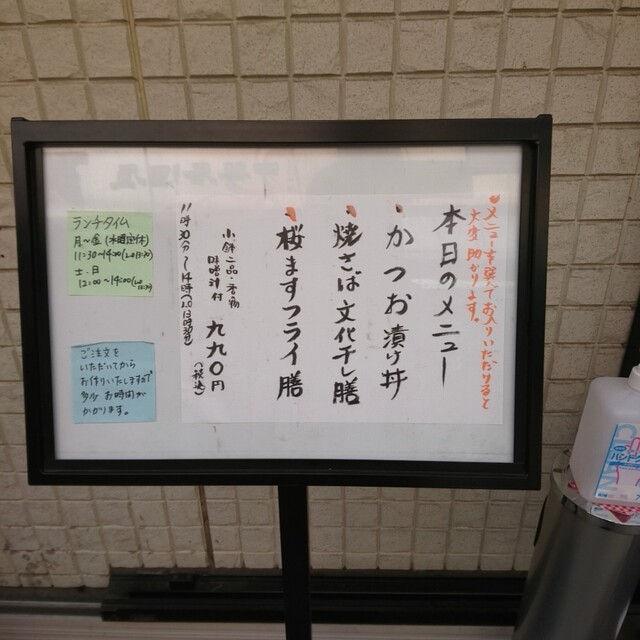 ♥メニューを見てお入りいただけると
大変助かります。
本日のメニュー
・かつお漬け丼
・焼さば文化干し膳
・桜ますフライ膳
小鉢二品・香の物
味噌汁付
九九〇円
(税込)
11時30分〜14時(L.O 13時30分)
ランチタイム
月〜金(水曜定休)
11:30〜14:00(L.o 13:30)
土.日
12:00〜14:00(L.o 13:30)
ご注文を
いただいてから
お作りいたしますので
多少お時間が
かかります。